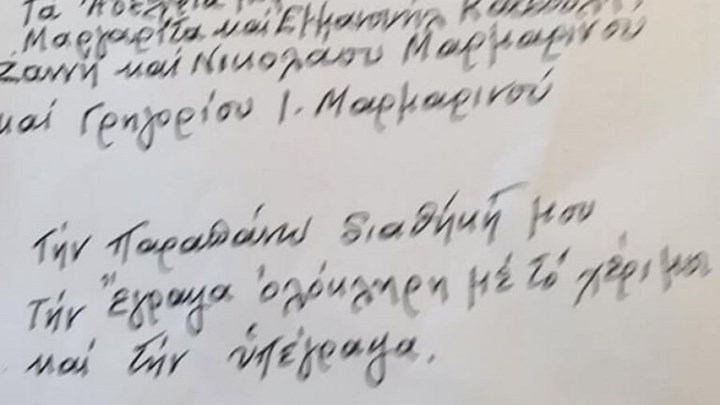 Τα Ἀδέλφια
Μαργαρίτα και Εμμανουήλ
Ζαννή και Νικολάου Μαρμαρινού
και Γρηγορίου Ι. Μαρμαρινού
Τήν παραπάνω διαθήκή μου
Τήν ἔγραψα ὁλόκληρη μέ τό χέρι μου
και τήν ὑπέγραψα.